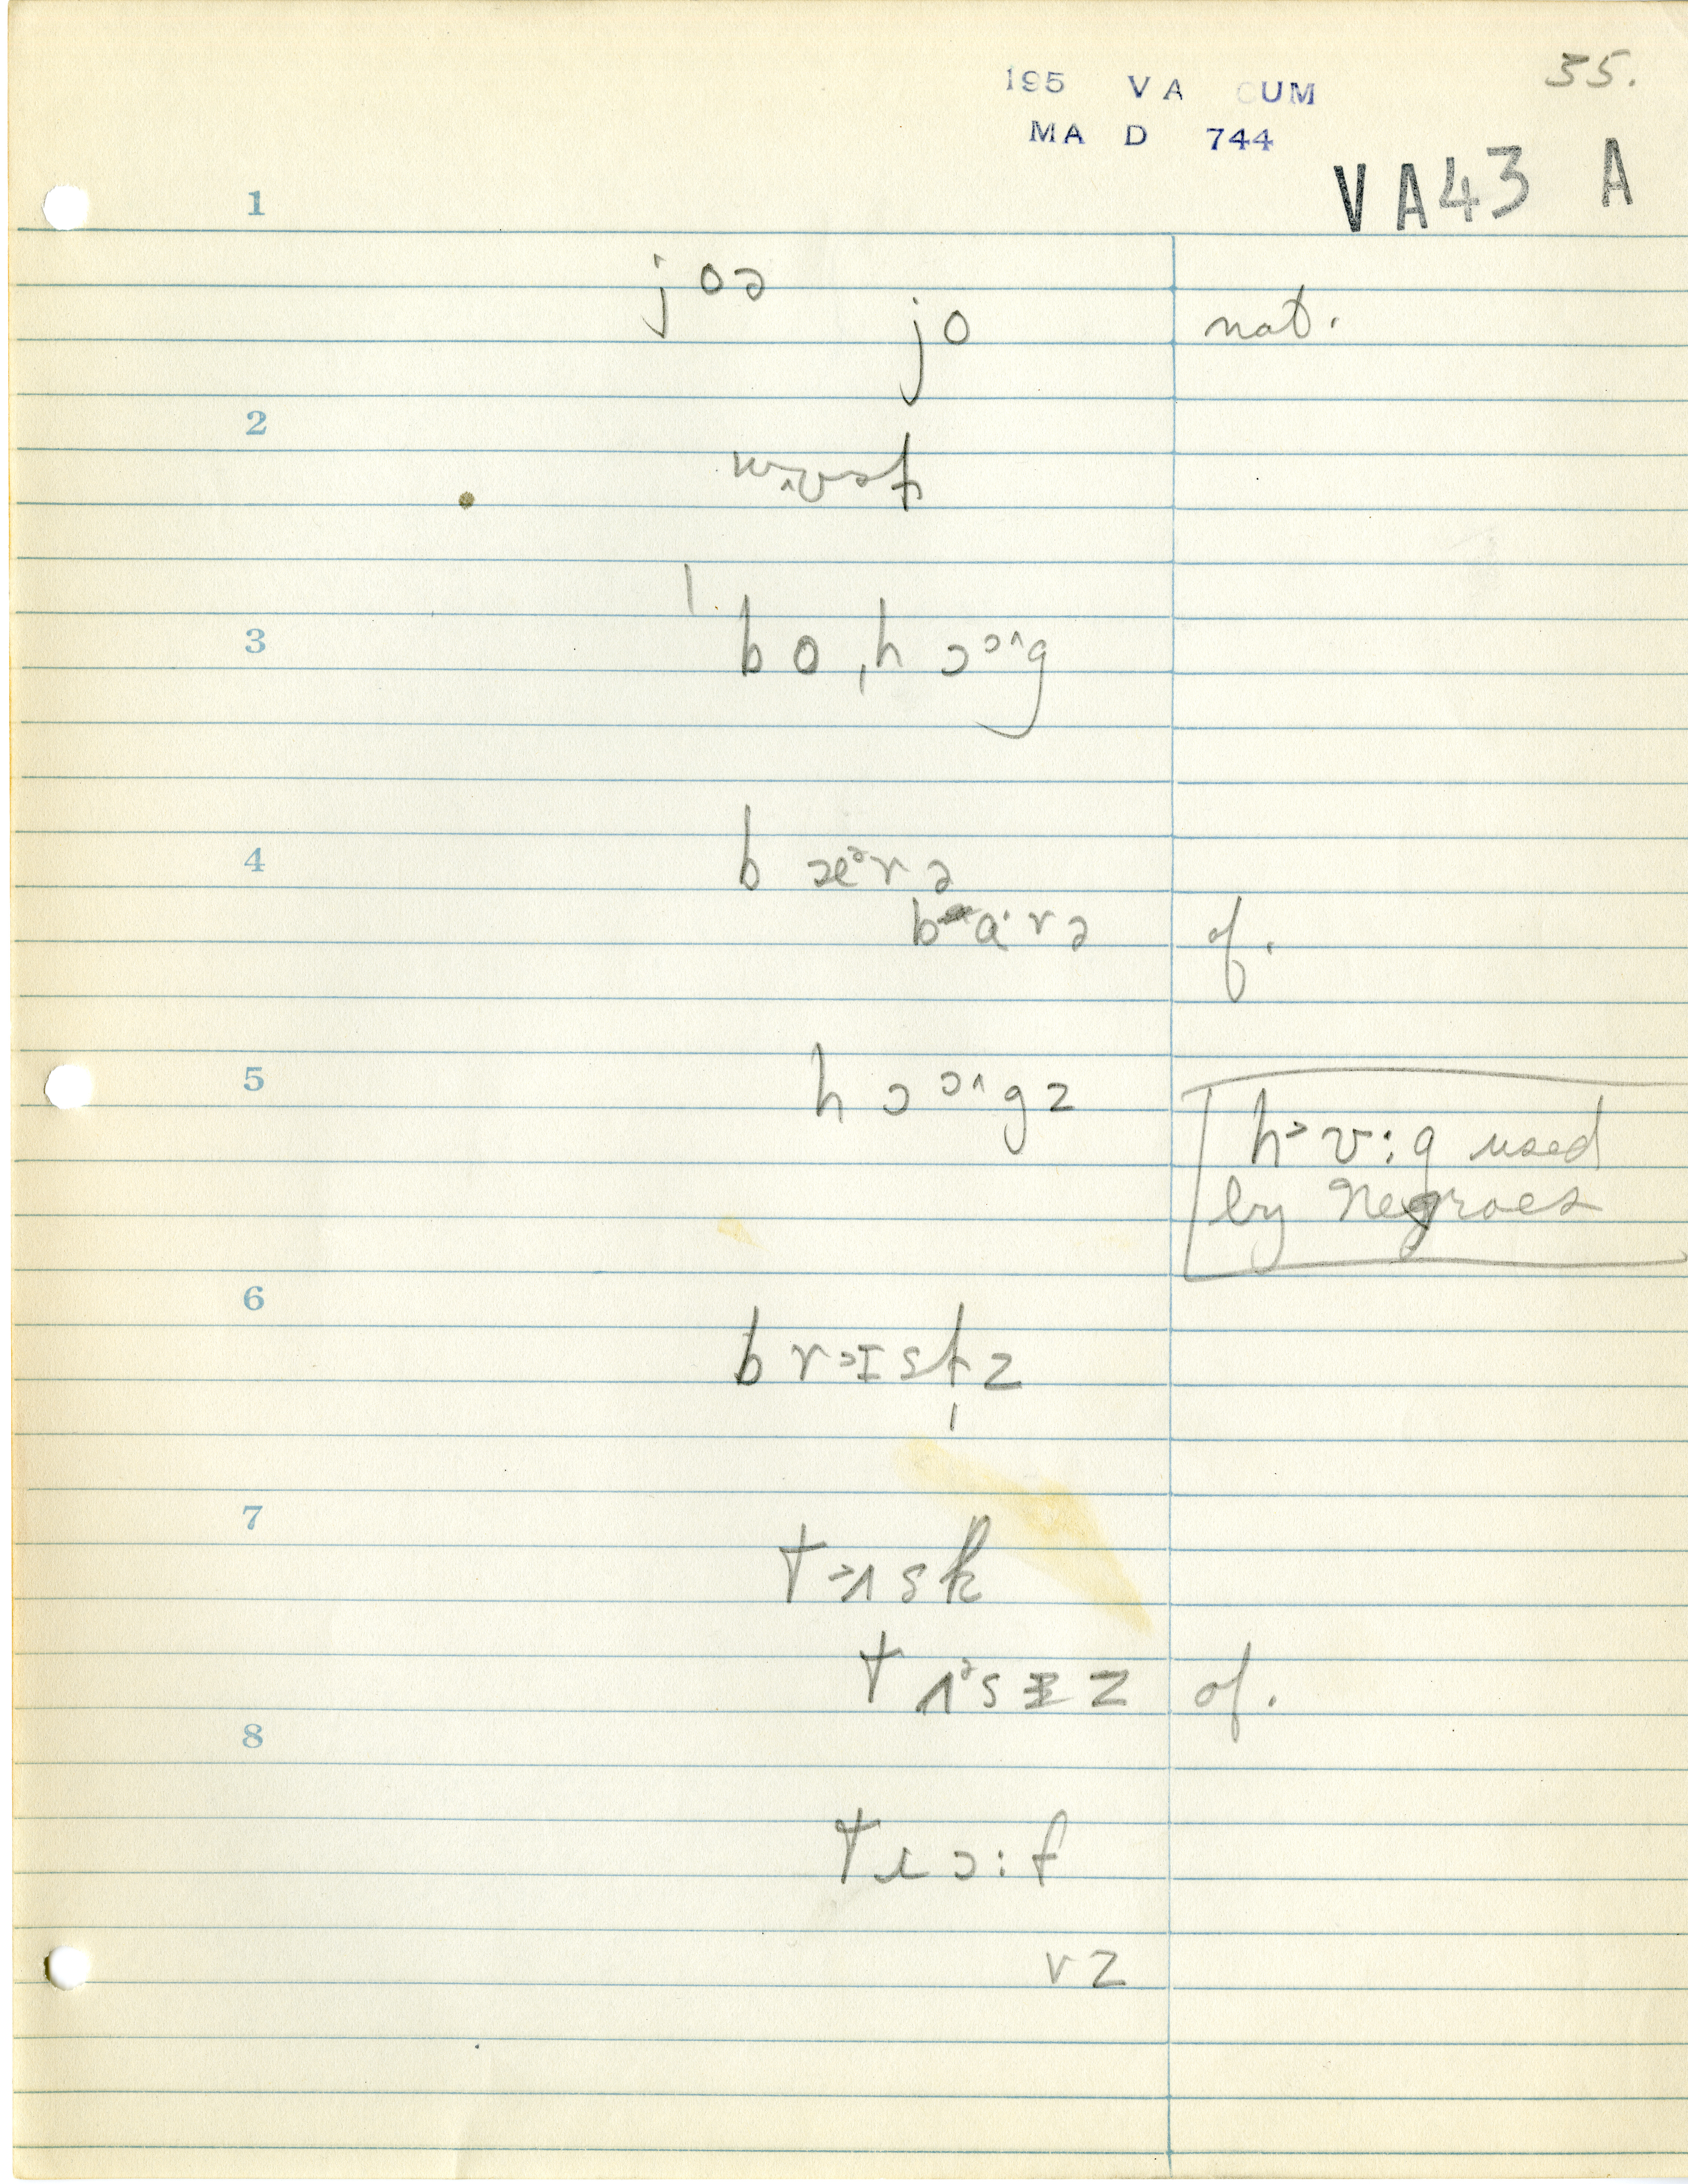 35.
195 VA CUM
MA D 744
VA43 A
1
joə
jo nat.
2
3
ˈbo ˌhɔɔ^g
4
bæᵊrə
ba·rə of.
5
hɔɔ^gz
hɒ:g used
by Negroes
6
brɪstz
7
tʌsk
tʌᵊsɪz of.
8
trɔ:f
vz